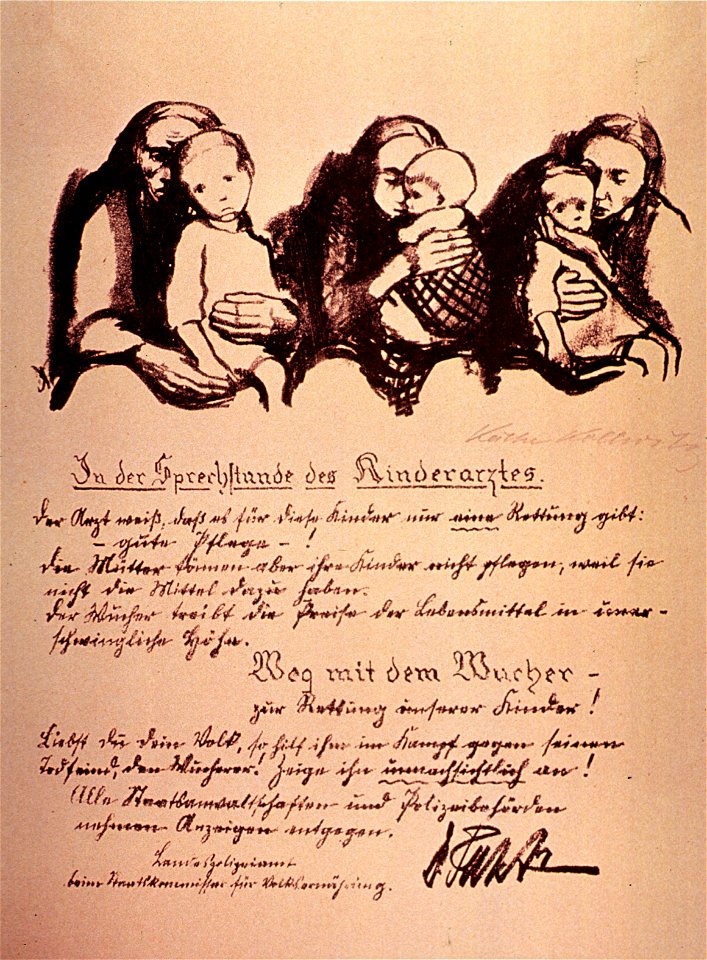 Käthe Kollwitz
In der Sprechstunde des Kinderarztes.
Der Arzt weiß, daß es für diese Kinder nur eine Rettung gibt:
– gute Pflege – !
Die Mütter können aber ihre Kinder nicht pflegen, weil sie
nicht die Mittel dazu haben.
Der Wucher treibt die Preise der Lebensmittel in uner-
schwingliche Höhe.
Weg mit dem Wucher –
zur Rettung unserer Kinder!
Liebst du dein Volk, so hilf ihm im Kampf gegen seinen
Todfeind, den Wucherer! Zeige ihn unnachsichtlich an!
Alle Staatsanwaltschaften und Polizeibehörden
nehmen Anzeigen entgegen.
Landespolizeiamt
beim Staatskommissar für Volksernährung.